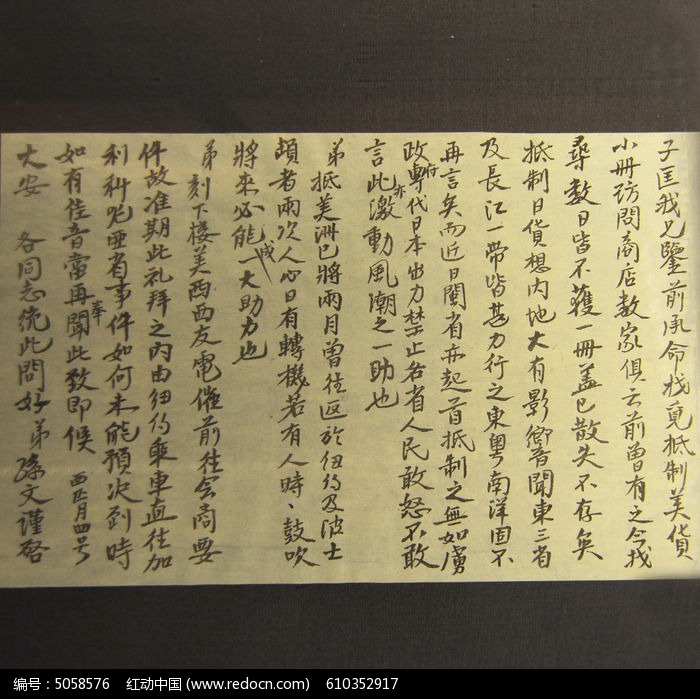 子匡我兄鑒前承命找覓抵制美貨
小冊訪問商店数家俱云前曾有之今找
尋数日皆不獲一冊蓋已散失不存矣
抵制日貨想内地大有影響聞東三省
及長江一帶皆甚力行之東粤南洋固不
再言矣而近日閩省亦起首抵制之無如虜
政府專代日本出力禁止各省人民敢怒不敢
言此亦激動風潮之一助也
弟抵美洲已將兩月曾往返於纽约及波士
頓者兩次人心日有轉機若有人時、鼓吹
將來必能成一大助力也
弟刻下接美西西友電催前往会商要
件故准期此礼拜之内由纽约乘車直往加
利科尼亜省事件如何未能預决到時
如有佳音當再奉聞此致即候
大安 各同志统此問好 弟孫文謹啓
西正月四号
编号：5058576 红动中国 (www.redocn.com) 610352917